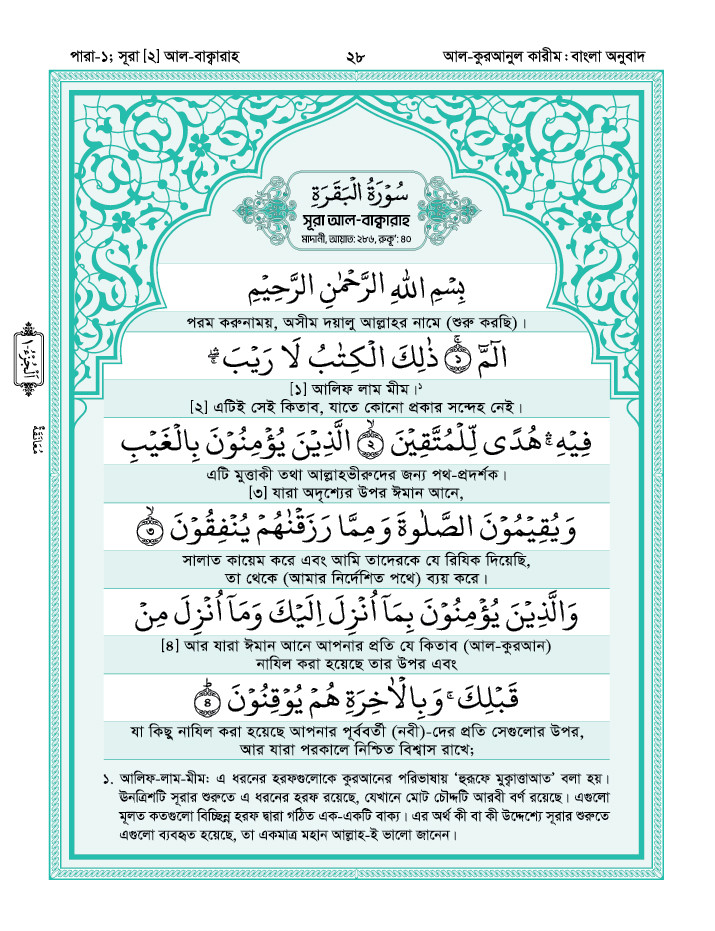 পারা-১; সূরা [২] আল-বাক্বারাহ ২৮ আল-কুরআনুল কারীম : বাংলা অনুবাদ
سُوْرَةُ الْبَقَرَةِ
সূরা আল-বাক্বারাহ
মাদানী, আয়াত: ২৮৬, রুকূ': ৪০
بِسْمِ اللهِ الرَّحْمٰنِ الرَّحِيْمِ
পরম করুনাময়, অসীম দয়ালু আল্লাহর নামে (শুরু করছি)।
الٓمّٓ ۚ ۝١ ذٰلِكَ الْكِتٰبُ لَا رَيْبَ ۛۖ
[১] আলিফ লাম মীম।¹
[২] এটিই সেই কিতাব, যাতে কোনো প্রকার সন্দেহ নেই।
فِيْهِ ۛۚ هُدًى لِّلْمُتَّقِيْنَ ۙ ۝٢ الَّذِيْنَ يُؤْمِنُوْنَ بِالْغَيْبِ
এটি মুত্তাকী তথা আল্লাহভীরুদের জন্য পথ-প্রদর্শক।
[৩] যারা অদৃশ্যের উপর ঈমান আনে,
وَيُقِيْمُوْنَ الصَّلٰوةَ وَمِمَّا رَزَقْنٰهُمْ يُنْفِقُوْنَ ۙ ۝٣
সালাত কায়েম করে এবং আমি তাদেরকে যে রিযিক দিয়েছি,
তা থেকে (আমার নির্দেশিত পথে) ব্যয় করে।
وَالَّذِيْنَ يُؤْمِنُوْنَ بِمَآ اُنْزِلَ اِلَيْكَ وَمَآ اُنْزِلَ مِنْ
[৪] আর যারা ঈমান আনে আপনার প্রতি যে কিতাব (আল-কুরআন)
নাযিল করা হয়েছে তার উপর এবং
قَبْلِكَ ۚ وَبِالْاٰخِرَةِ هُمْ يُوْقِنُوْنَ ؕ ۝٤
যা কিছু নাযিল করা হয়েছে আপনার পূর্ববর্তী (নবী)-দের প্রতি সেগুলোর উপর,
আর যারা পরকালে নিশ্চিত বিশ্বাস রাখে;
১. আলিফ-লাম-মীম: এ ধরনের হরফগুলোকে কুরআনের পরিভাষায় ‘হুরূফে মুক্বাত্তাআত’ বলা হয়।
ঊনত্রিশটি সূরার শুরুতে এ ধরনের হরফ রয়েছে, যেখানে মোট চৌদ্দটি আরবী বর্ণ রয়েছে। এগুলো
মূলত কতগুলো বিচ্ছিন্ন হরফ দ্বারা গঠিত এক-একটি বাক্য। এর অর্থ কী বা কী উদ্দেশ্যে সূরার শুরুতে
এগুলো ব্যবহৃত হয়েছে, তা একমাত্র মহান আল্লাহ-ই ভালো জানেন।
اَلْجُزْءُ - ١
مُعَانَقَةٌ